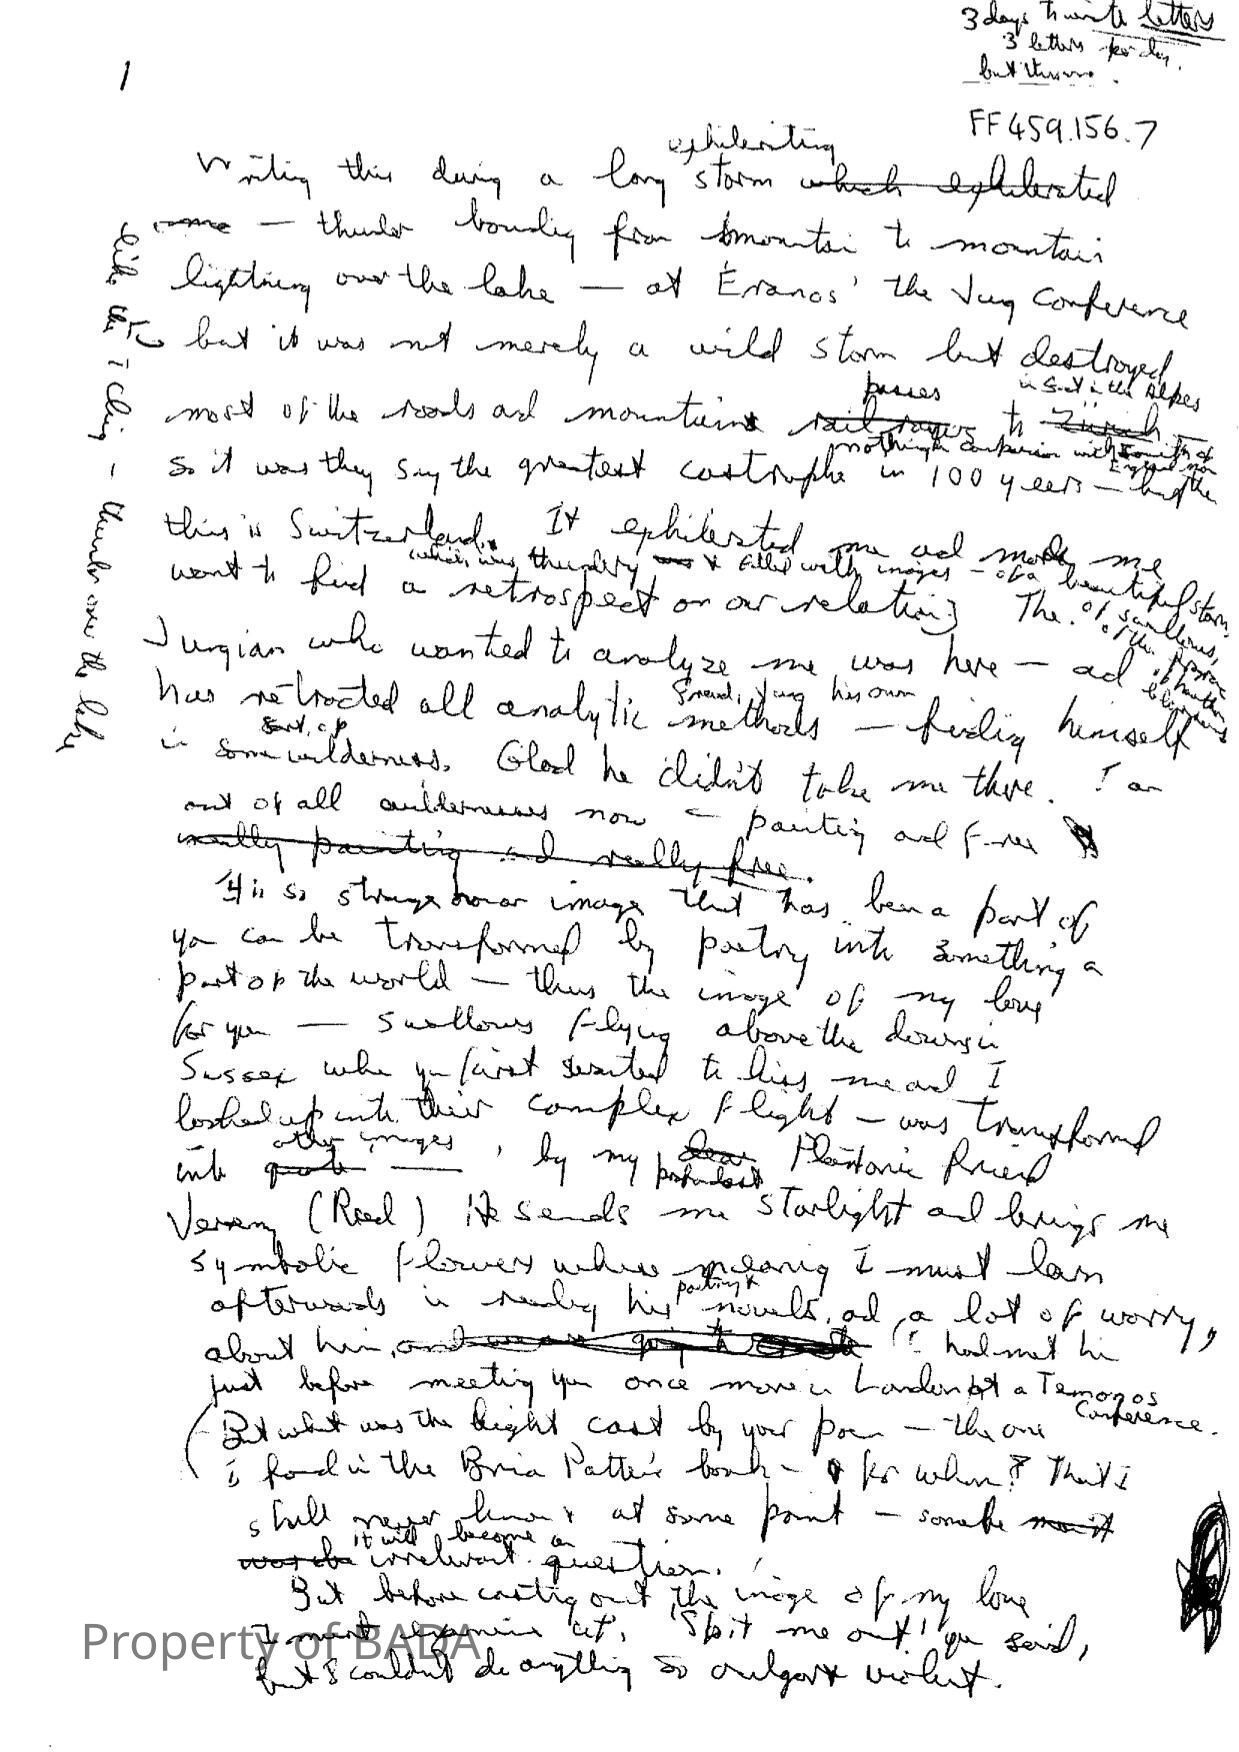 3 days to write letters
3 letters per day.
but
1
FF459.156.7
exhilerating
Writing this during a long storm which exhilerated
me — thunder bounding from mountain to mountain
lightning over the lake — at Eranos' the Jung Conference
but it was not merely a wild storm but destroyed
passes in Sud in the Alpes
most of the roads and mountains to Zürich
nothing in comparison with South of England now
so it was they say the greatest castrophe in 100 years — and the
this is Switzerland. It exhilerated me and made me
which was thundery & filled with images — of a beautiful storm,
want to find a retrospect on our relation The
of swallows,
of the
Jungian who wanted to analyze me was here — and
Freud, Jung his own
has retracted all analytic methods — finding himself
sort of
in some wilderness. Glad he didn't take me there. I am
out of all wildernesses now — painting and free
really painting and really free.
It is so strange how an image that has been a part of
you can be transformed by poetry into something a
part of the world — thus the image of my love
for you — swallows flying above the downs in
Sussex when you first wanted to kiss me and I
looked up into their complex flight — was transformed
other images
into quote — , by my dear Platonic friend
Vereny (Reed) He sends me starlight and brings me
symbolic flowers whose meaning I must learn
poetry &
afterwards in reading his novels, and, a lot of worry,
about him, I had met him
just before meeting you once more in London at a Temonos
Conference.
(But what was the light cast by your poem — the one
I found in the Brian Patten book — for whom? That I
shall never know & at some point —
it will become an
irrelevant question.
But before casting out the image of my love
I must examine it. 'Spit me out' you said,
but I couldn't do anything so violent.
like the I Ching — thunder over the lake
Property of BADA